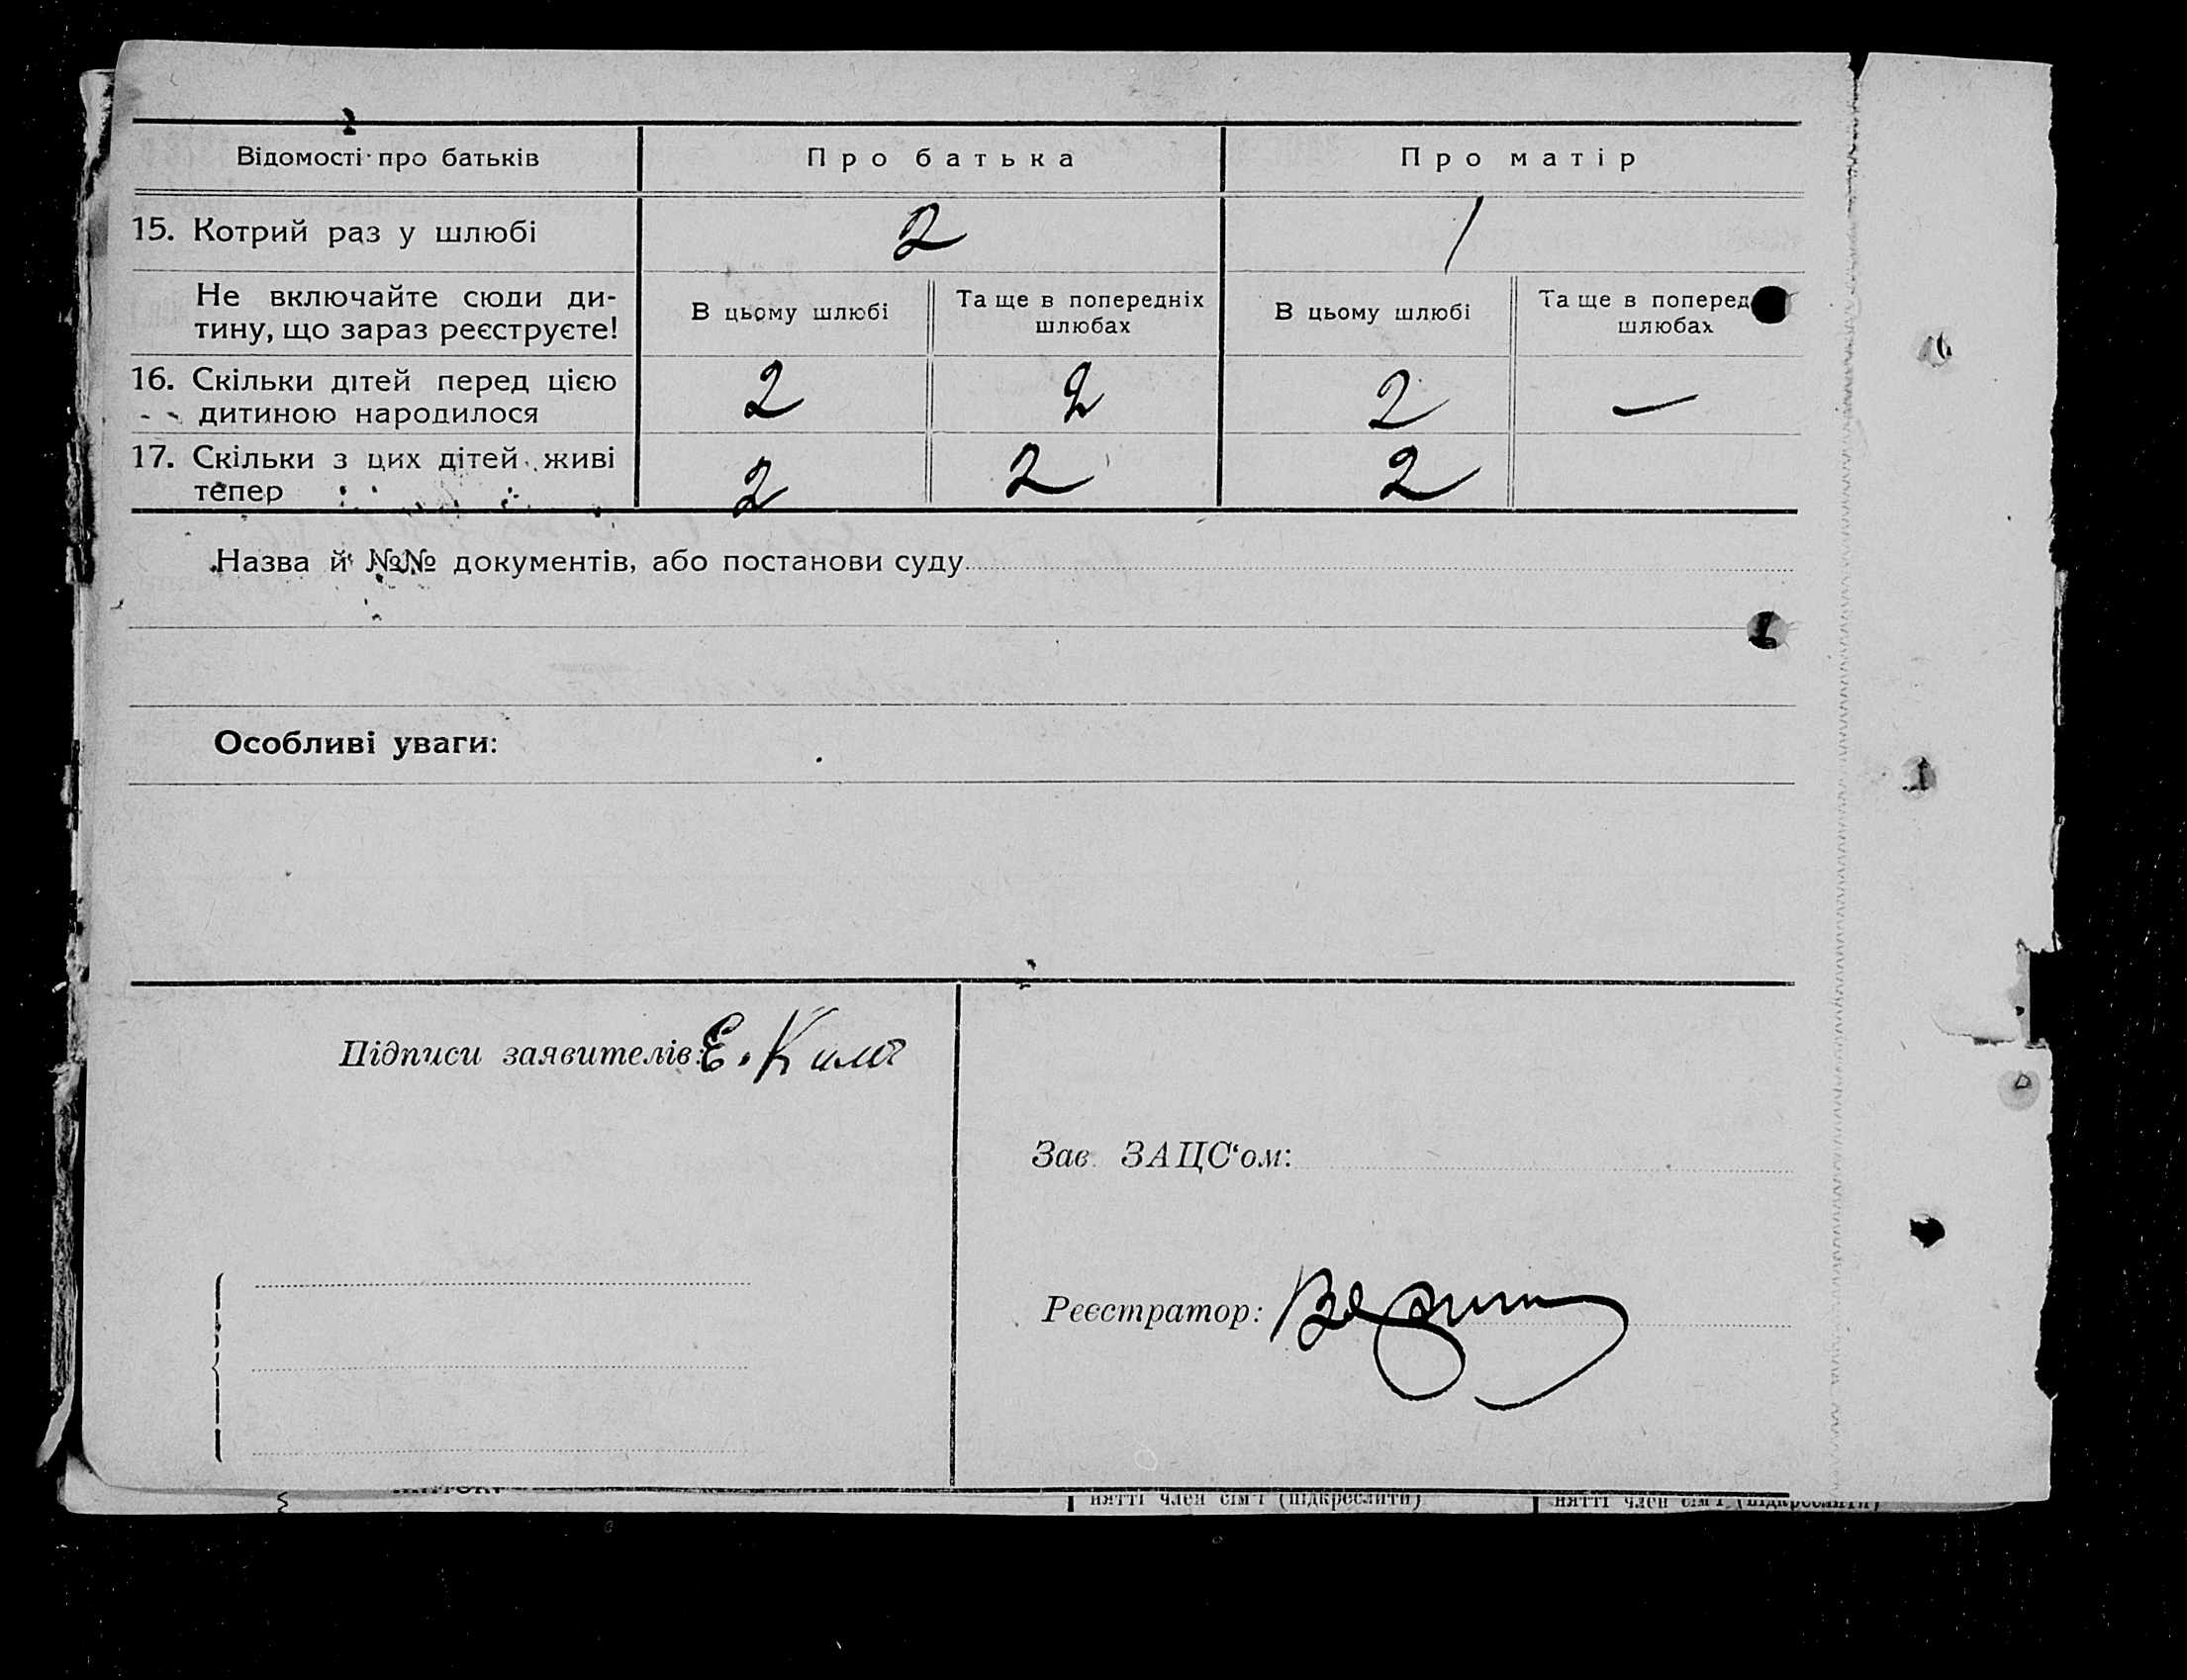 Відомості про батьків Про батька Про матір
15. Котрий раз у шлюбі 2 1
Не включайте сюди ди-
тину, що зараз реєструєте!
В цьому шлюбі
Та ще в попередніх
шлюбах
В цьому шлюбі
Та ще в поперед
шлюбах
16. Скільки дітей перед цією
дитиною народилося
2 2 2 —
17. Скільки з цих дітей живі
тепер
2 2 2
Назва й №№ документів, або постанови суду
Особливі уваги:
Підписи заявителів: Е.
Зав. ЗАЦС‘ом:
Реєстратор:
нятті член сім'ї (підкреслити) нятті член сім'ї (підкреслити)